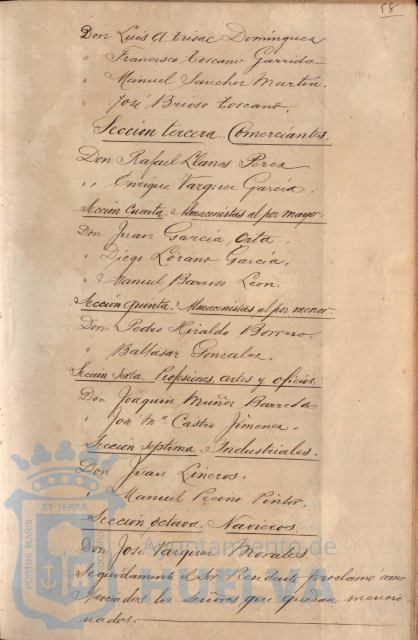 58
Don Luis A. Trisac Dominguez
" Francisco Toscano Garrido
" Manuel Sanchez Martin.
" José Brioso Toscano.
Sección tercera. Comerciantes.
Don Rafael Llanes Perez
" Enrique Vazquez García.
Sección Cuarta. Almacenistas al por mayor
Don Juan García Orta.
" Diego Lozano García.
" Manuel Barroso Leon.
Sección quinta. Almacenistas al por menor
Don Pedro Hiraldo Borrero.
" Baltasar Gonzalez.
Sección Sexta. Profesiones, artes y oficios.
Don Joaquin Muñoz Barreda
" José Mª Castro Jimenez.
Sección Septima. Industriales.
Don Juan Lineros.
" Manuel Pecino Pintor.
Sección Octava. Navieros.
Don José Vazquez Morales
Seguidamente el Sor Presidente proclamó como
Asociados los Señores que quedan mencio
nados.
PORTUS MARIS ET TERRAE
Ayuntamiento de
HUELVA